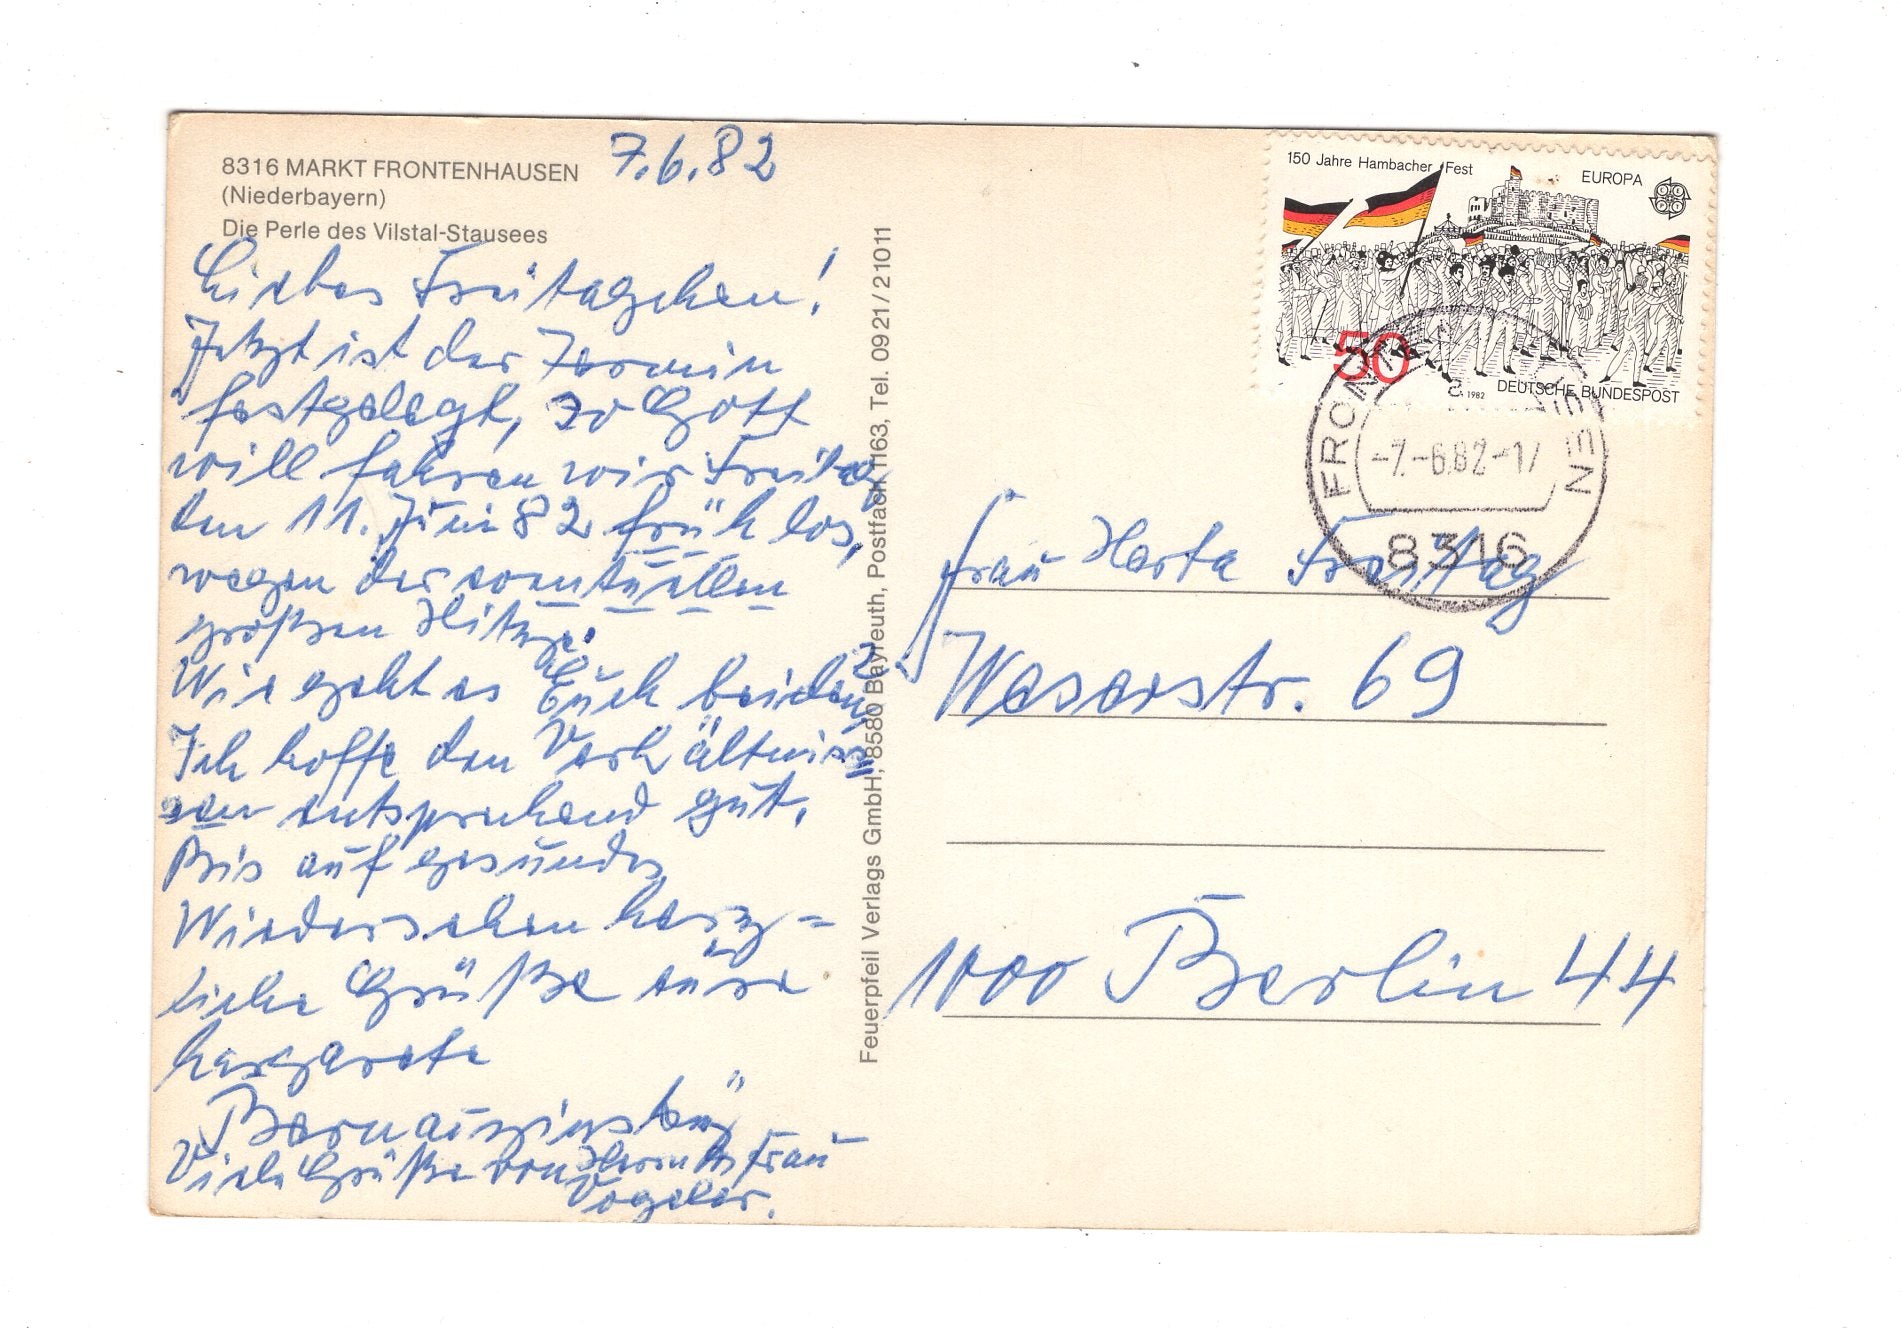 8316 MARKT FRONTENHAUSEN
(Niederbayern)
Die Perle des Vilstal-Stausees
7.6.82
Liebes Freitagchen!
Jetzt ist der Termin
festgelegt, so Gott
will fahren wir Freitag
den 11. Juni 82 früh los,
wegen der eventuellen
großen Hitze.
Wie geht es Euch beiden?
Ich hoffe den Verhältniss
sen entsprechend gut.
Bis auf gesundes
Wiedersehen herz=
liche Grüße eure
Margarete
Viele Grüße von Frau
Vogeler.
Feuerpfeil Verlags GmbH, 8580 Bayreuth, Postfach 1163, Tel. 0921/21011
150 Jahre Hambacher Fest
EUROPA
50
1982
DEUTSCHE BUNDESPOST
FRONTENHAUSEN
-7.-6.82-17
8316
Frau Herta Freitag
Weserstr. 69
1000 Berlin 44